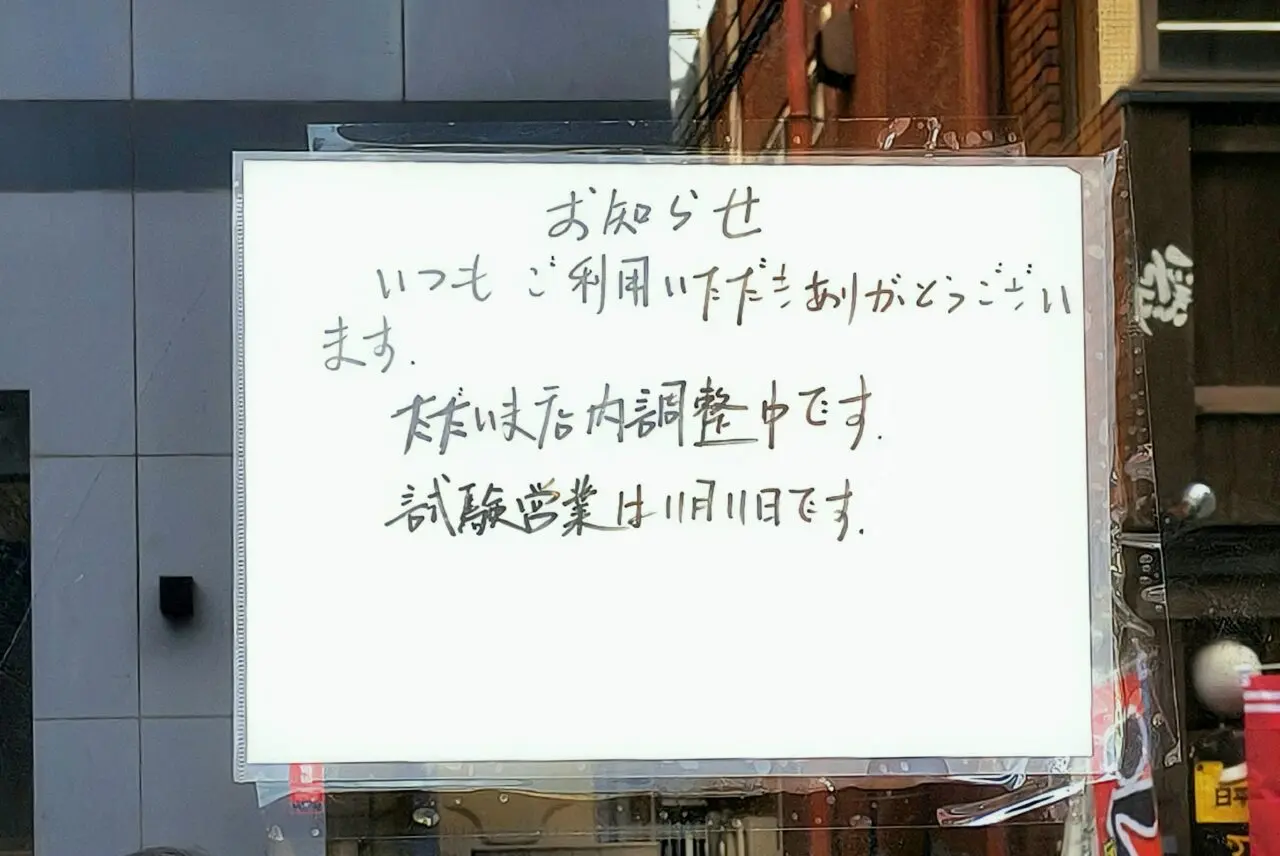 お知らせ
いつも ご利用いただきありがとうござい
ます.
ただいま店内調整中です.
試験営業は11月11日です.